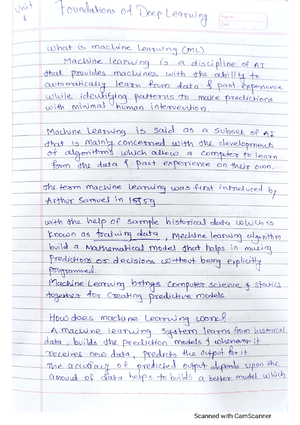 Unit
1
Foundations of Deep Learning
What is machine Learning (ML)
Machine learning is a discipline of AI
that provides machines with the ability to
automatically learn from data & past experience
while identifying patterns to make predictions
with minimal human intervention.
Machine Learning is said as a subset of AI
that is mainly concerned with the development
of algorithms which allow a computer to learn
from the data & past experience on their own.
The term machine learning was first introduced by
Arthur Samuel in 1959
With the help of sample historical data which is
known as training data, Machine learning algorithm
build a Mathematical model that helps in making
Predictions or decisions without being explicitly
programmed.
Machine Learning brings computer science & statics
together for creating predictive models.
How does machine Learning work?
A machine learning system learns from historical
data, builds the prediction models & whenever it
receives new data, predicts the output for it
The accuracy of predicted output depends upon the
amount of data helps to builds a better model which
Scanned with CamScanner